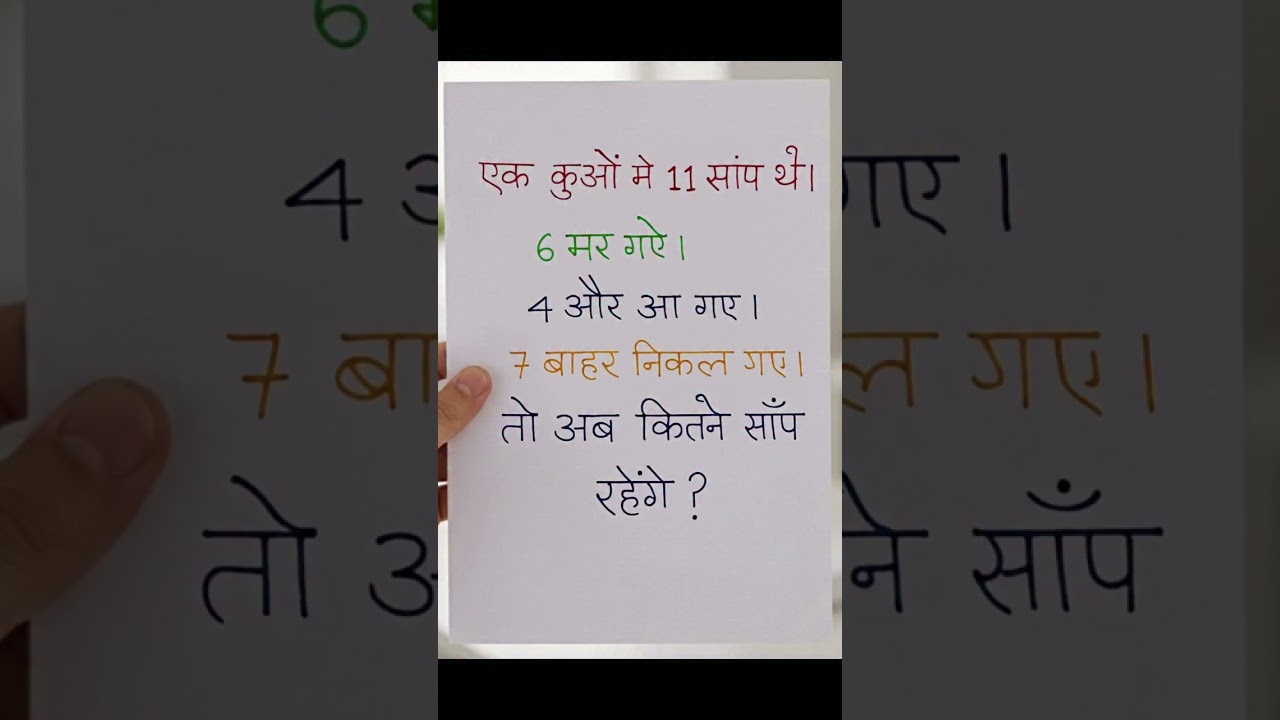 एक कुओं मे 11 सांप थे।
6 मर गऐ।
4 और आ गए।
7 बाहर निकल गए।
तो अब कितने साँप
रहेंगे ?